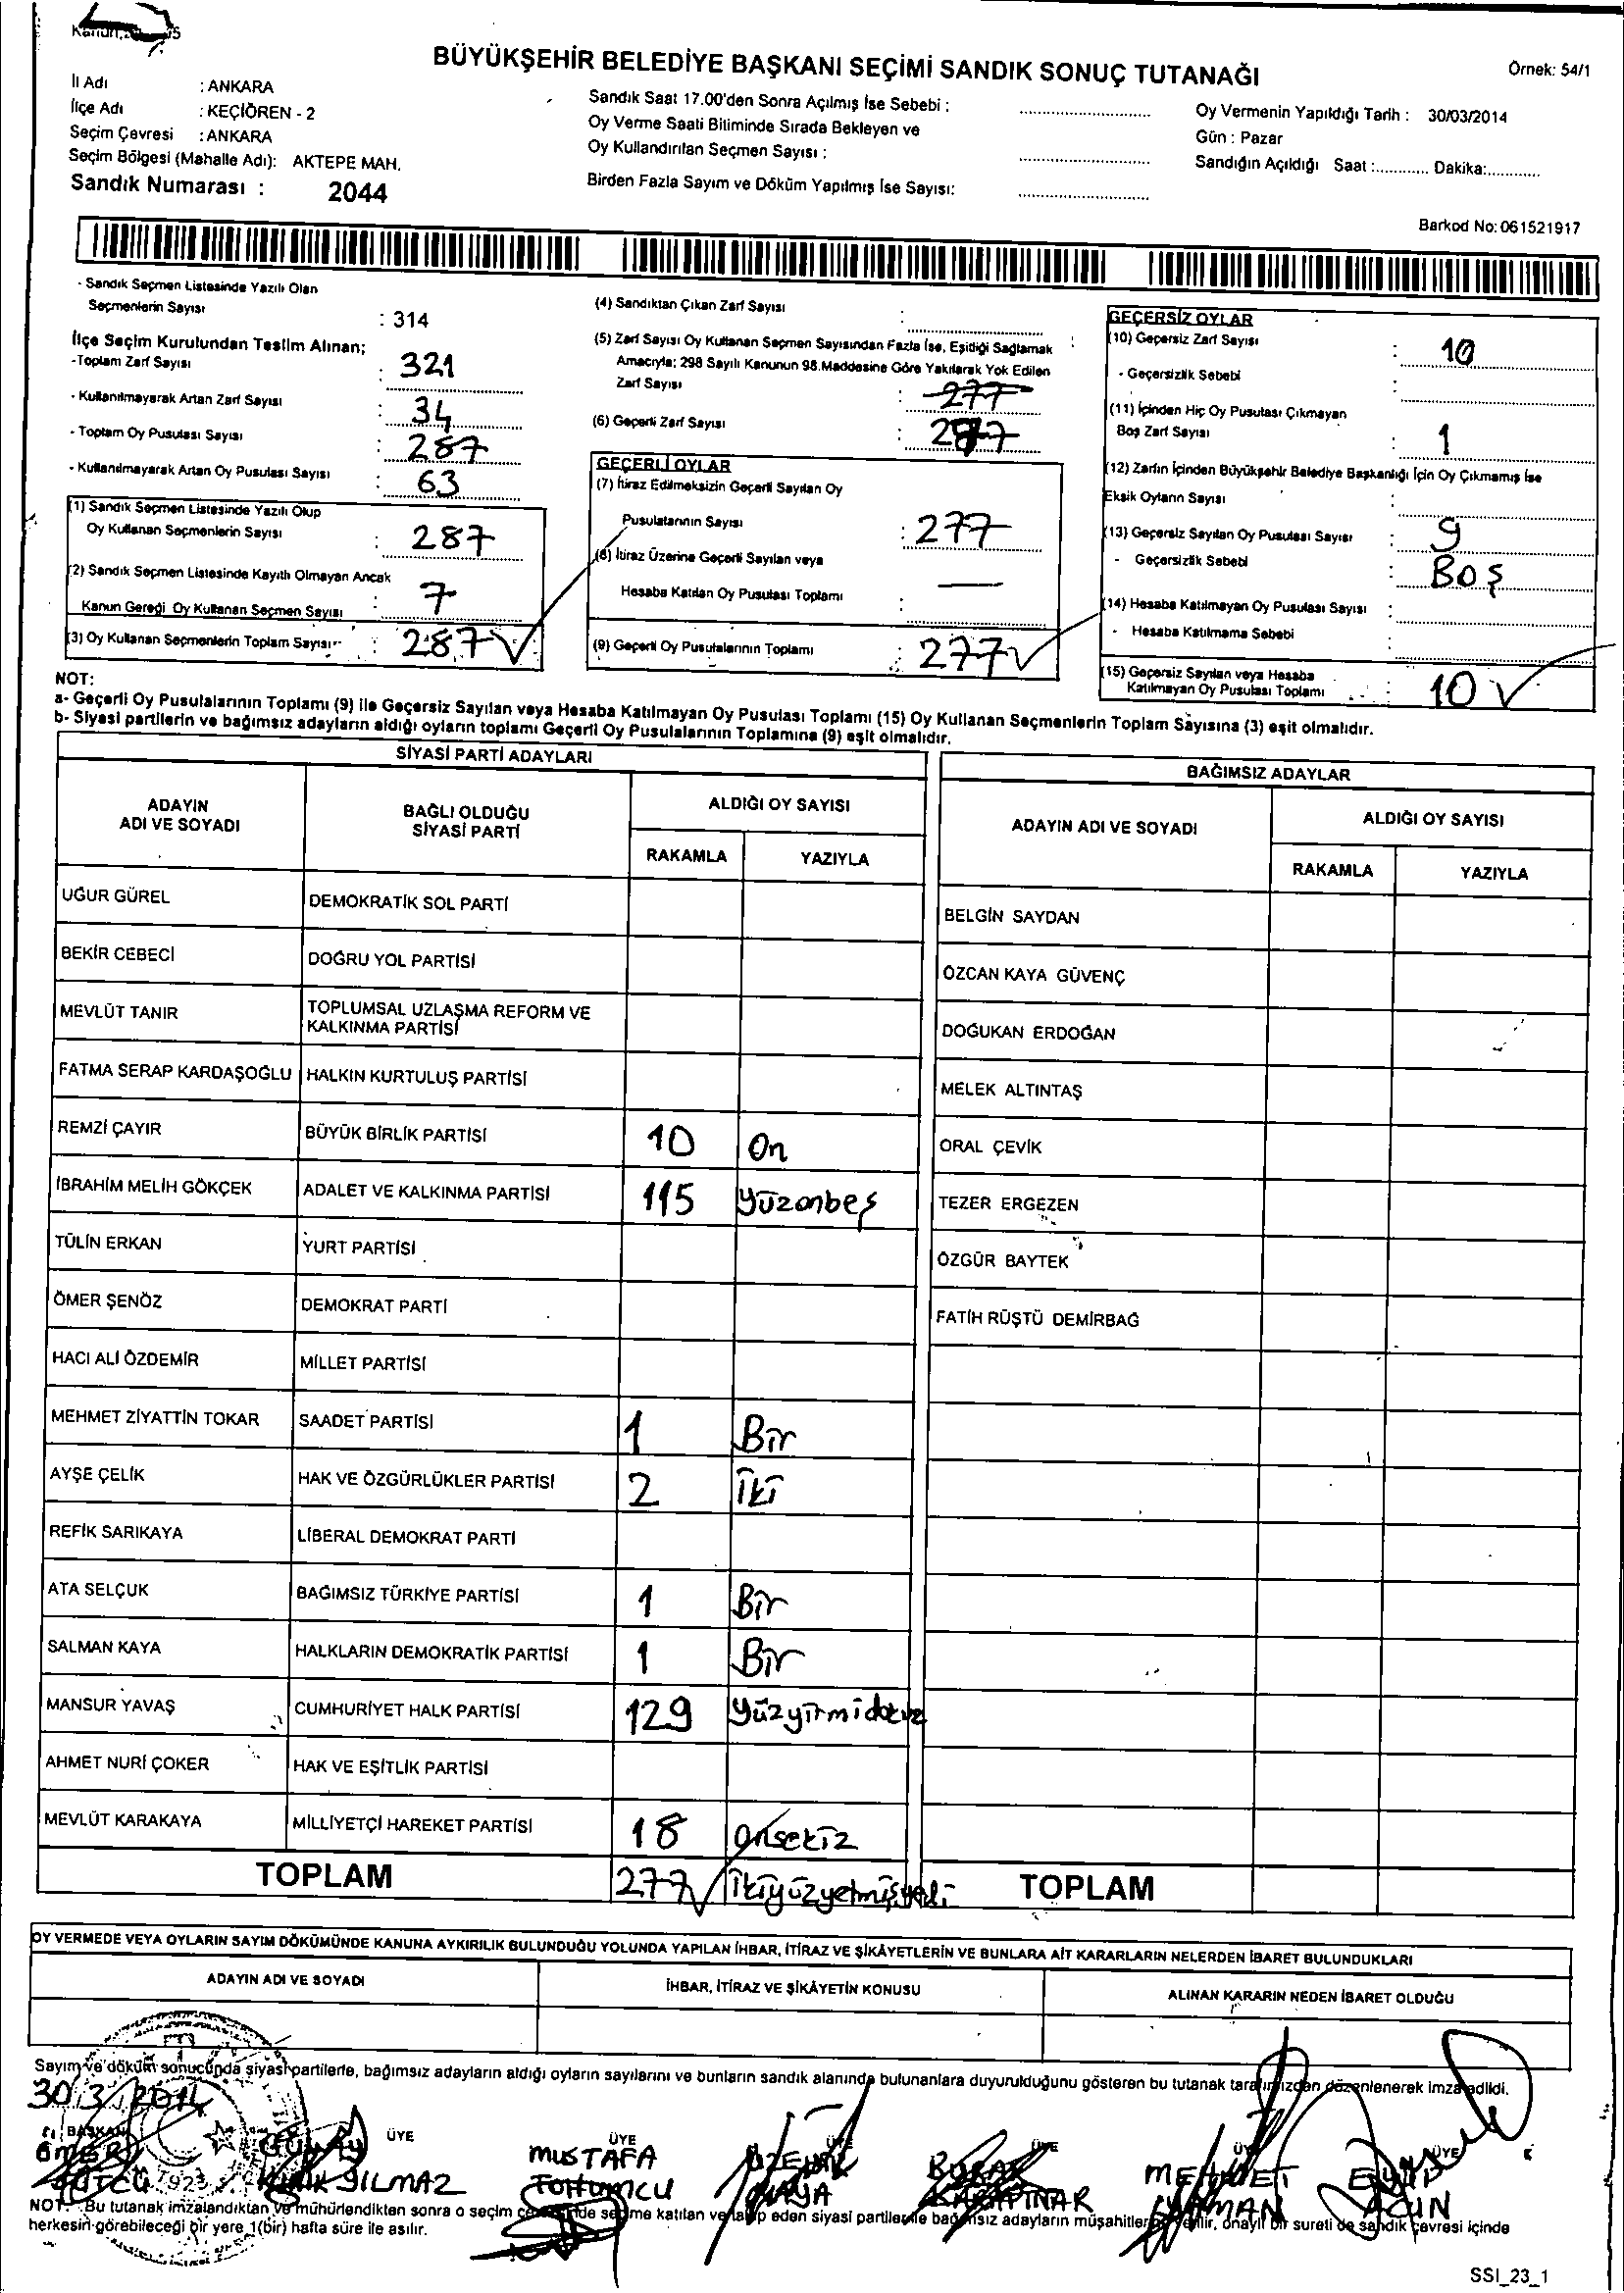 BÜYÜKŞEHİR BELEDİYE BAŞKANI SEÇİMİ SANDIK SONUÇ TUTANAĞI
Örnek: 54/1
İl Adı : ANKARA
İlçe Adı : KEÇİÖREN - 2
Seçim Çevresi : ANKARA
Seçim Bölgesi (Mahalle Adı): AKTEPE MAH.
Sandık Numarası : 2044
Sandık Saat 17.00'den Sonra Açılmış İse Sebebi :
Oy Verme Saati Bitiminde Sırada Bekleyen ve
Oy Kullandırılan Seçmen Sayısı :
Birden Fazla Sayım ve Döküm Yapılmış İse Sayısı:
Oy Vermenin Yapıldığı Tarih : 30/03/2014
Gün : Pazar
Sandığın Açıldığı Saat :............ Dakika:............
Barkod No: 061521917
- Sandık Seçmen Listesinde Yazılı Olan
Seçmenlerin Sayısı : 314
İlçe Seçim Kurulundan Teslim Alınan;
-Toplam Zarf Sayısı : 321
- Kullanılmayarak Artan Zarf Sayısı : 34
- Toplam Oy Pusulası Sayısı : 287
- Kullanılmayarak Artan Oy Pusulası Sayısı : 63
(1) Sandık Seçmen Listesinde Yazılı Olup
Oy Kullanan Seçmenlerin Sayısı : 287
(2) Sandık Seçmen Listesinde Kayıtlı Olmayan Ancak
Kanun Gereği Oy Kullanan Seçmen Sayısı : 7
(3) Oy Kullanan Seçmenlerin Toplam Sayısı : 287
(4) Sandıktan Çıkan Zarf Sayısı :
(5) Zarf Sayısı Oy Kullanan Seçmen Sayısından Fazla İse, Eşitliği Sağlamak :
Amacıyla; 298 Sayılı Kanunun 98.Maddesine Göre Yakılarak Yok Edilen
Zarf Sayısı : 277
(6) Geçerli Zarf Sayısı : 277
GEÇERLİ OYLAR
(7) İtiraz Edilmeksizin Geçerli Sayılan Oy
Pusulalarının Sayısı : 277
(8) İtiraz Üzerine Geçerli Sayılan veya
Hesaba Katılan Oy Pusulası Toplamı : —
(9) Geçerli Oy Pusulalarının Toplamı : 277
GEÇERSİZ OYLAR
(10) Geçersiz Zarf Sayısı : 10
- Geçersizlik Sebebi :
(11) İçinden Hiç Oy Pusulası Çıkmayan
Boş Zarf Sayısı : 1
(12) Zarfın İçinden Büyükşehir Belediye Başkanlığı İçin Oy Çıkmamış İse
Eksik Oyların Sayısı :
(13) Geçersiz Sayılan Oy Pusulası Sayısı : 9
- Geçersizlik Sebebi : BOŞ
(14) Hesaba Katılmayan Oy Pusulası Sayısı :
- Hesaba Katılmama Sebebi :
(15) Geçersiz Sayılan veya Hesaba
Katılmayan Oy Pusulası Toplamı : 10
NOT:
a- Geçerli Oy Pusulalarının Toplamı (9) ile Geçersiz Sayılan veya Hesaba Katılmayan Oy Pusulası Toplamı (15) Oy Kullanan Seçmenlerin Toplam Sayısına (3) eşit olmalıdır.
b- Siyasi partilerin ve bağımsız adayların aldığı oyların toplamı Geçerli Oy Pusulalarının Toplamına (9) eşit olmalıdır.
SİYASİ PARTİ ADAYLARI
ADAYIN ADI VE SOYADI
BAĞLI OLDUĞU SİYASİ PARTİ
ALDIĞI OY SAYISI
RAKAMLA YAZIYLA
UĞUR GÜREL DEMOKRATİK SOL PARTİ
BEKİR CEBECİ DOĞRU YOL PARTİSİ
MEVLÜT TANIR TOPLUMSAL UZLAŞMA REFORM VE KALKINMA PARTİSİ
FATMA SERAP KARDAŞOĞLU HALKIN KURTULUŞ PARTİSİ
REMZİ ÇAYIR BÜYÜK BİRLİK PARTİSİ 10 On
İBRAHİM MELİH GÖKÇEK ADALET VE KALKINMA PARTİSİ 115 yüzonbeş
TÜLİN ERKAN YURT PARTİSİ
ÖMER ŞENÖZ DEMOKRAT PARTİ
HACI ALİ ÖZDEMİR MİLLET PARTİSİ
MEHMET ZİYATTİN TOKAR SAADET PARTİSİ 1 Bir
AYŞE ÇELİK HAK VE ÖZGÜRLÜKLER PARTİSİ 2 İki
REFİK SARIKAYA LİBERAL DEMOKRAT PARTİ
ATA SELÇUK BAĞIMSIZ TÜRKİYE PARTİSİ 1 Bir
SALMAN KAYA HALKLARIN DEMOKRATİK PARTİSİ 1 Bir
MANSUR YAVAŞ CUMHURİYET HALK PARTİSİ 129
AHMET NURİ ÇOKER HAK VE EŞİTLİK PARTİSİ
MEVLÜT KARAKAYA MİLLİYETÇİ HAREKET PARTİSİ 18 onsekiz
TOPLAM 277 ikiyüzyetmişyedi
BAĞIMSIZ ADAYLAR
ADAYIN ADI VE SOYADI
ALDIĞI OY SAYISI
RAKAMLA YAZIYLA
BELGİN SAYDAN
ÖZCAN KAYA GÜVENÇ
DOĞUKAN ERDOĞAN
MELEK ALTINTAŞ
ORAL ÇEVİK
TEZER ERGEZEN
ÖZGÜR BAYTEK
FATİH RÜŞTÜ DEMİRBAĞ
TOPLAM
OY VERMEDE VEYA OYLARIN SAYIM DÖKÜMÜNDE KANUNA AYKIRILIK BULUNDUĞU YOLUNDA YAPILAN İHBAR, İTİRAZ VE ŞİKÂYETLERİN VE BUNLARA AİT KARARLARIN NELERDEN İBARET BULUNDUKLARI
ADAYIN ADI VE SOYADI İHBAR, İTİRAZ VE ŞİKÂYETİN KONUSU ALINAN KARARIN NEDEN İBARET OLDUĞU
Sayım ve döküm sonucunda siyasi partilerle, bağımsız adayların aldığı oyların sayılarını ve bunların sandık alanında bulunanlara duyurulduğunu gösteren bu tutanak tarafımızdan düzenlenerek imza edildi.
30.3.2014
BAŞKAN ÜYE ÜYE ÜYE ÜYE ÜYE ÜYE
ÖMER MUSTAFA BURAK MEHMET EYÜP
YILMAZ KAYA
NOT: Bu tutanak imzalandıktan ve mühürlendikten sonra o seçim çevresinde seçime katılan ve talep eden siyasi partilerle bağımsız adayların müşahitlerine verilir, onaylı bir sureti de sandık çevresi içinde
herkesin görebileceği bir yere 1(bir) hafta süre ile asılır.
SSI_23_1